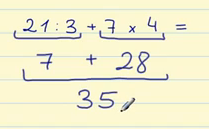 21 : 3 + 7 × 4 =
7 + 28
35